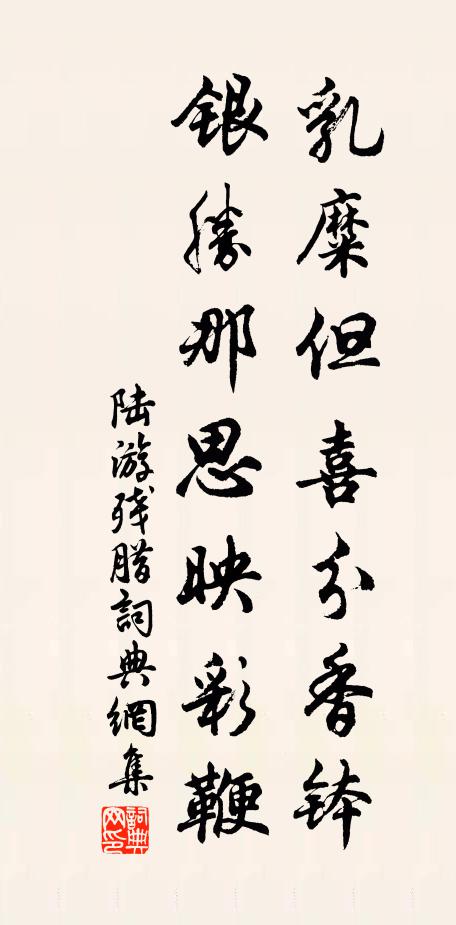 乳糜但喜分香钵
銀勝那思映彩鞭
陆游残腊詞典網集
詞典網印